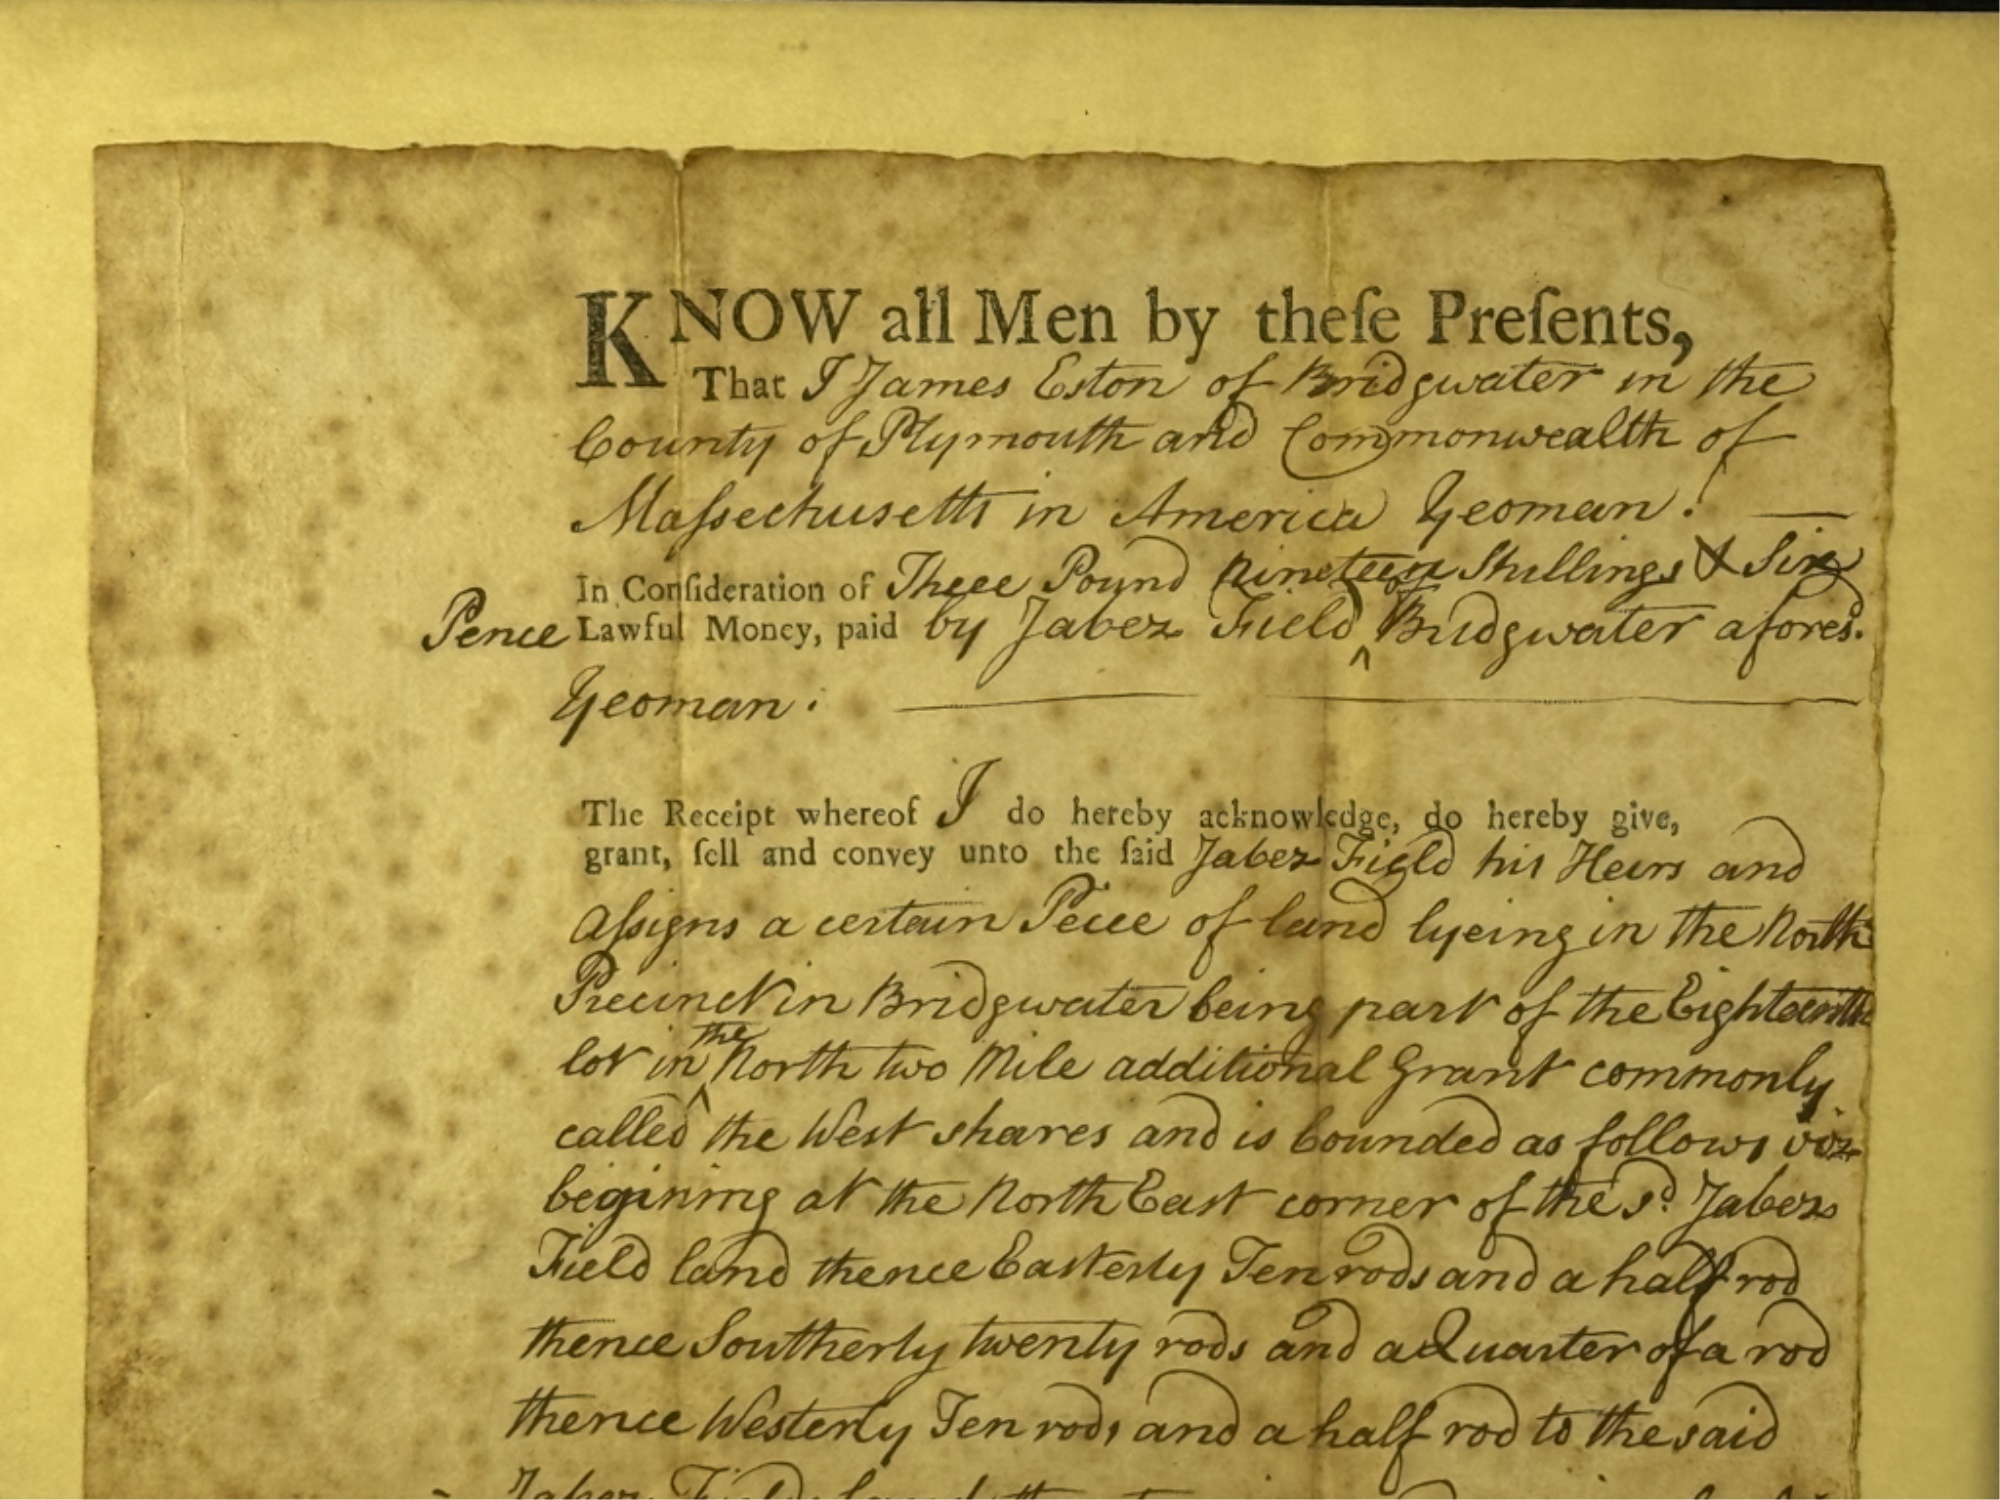 KNOW all Men by theſe Preſents,
That I James Eston of Bridgwater in the
County of Plymouth and Commonwealth of
Maſsechusetts in America Yeoman:
In Conſideration of Three Pound Nineteen Shillings & Six
Pence Lawful Money, paid by Jabez Field of Bridgwater afores.
Yeoman:
The Receipt whereof I do hereby acknowledge, do hereby give,
grant, ſell and convey unto the ſaid Jabez Field his Heirs and
Aſsigns a certain Peice of land lyeing in the North
Precinct in Bridgwater being part of the Eighteenth
lot in the North two Mile additional Grant commonly
called the West shares and is bounded as follows viz
begining at the North East corner of the sd. Jabez
Field land thence Easterly Ten rods and a half rod
thence Southerly twenty rods and a Quarter of a rod
thence Westerly Ten rods and a half rod to the said
Jabez Fields land